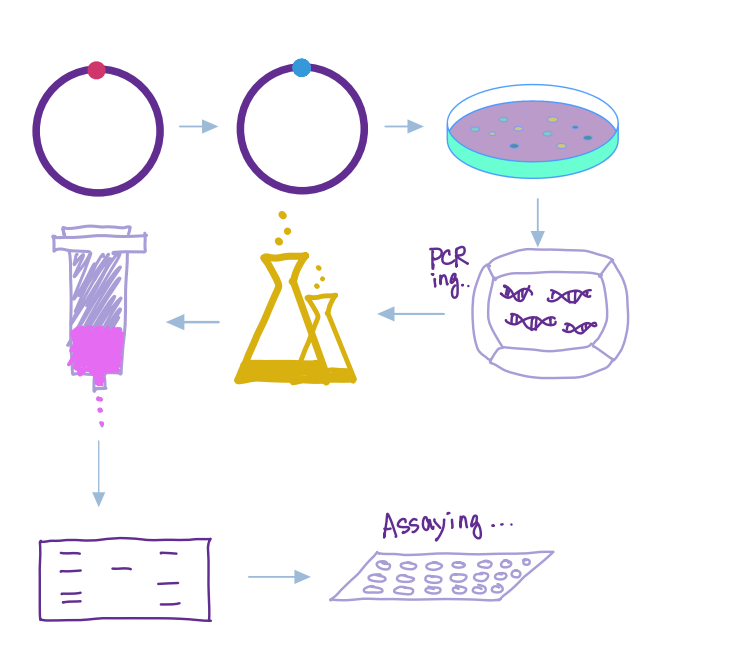 PCR
ing..
Assaying...